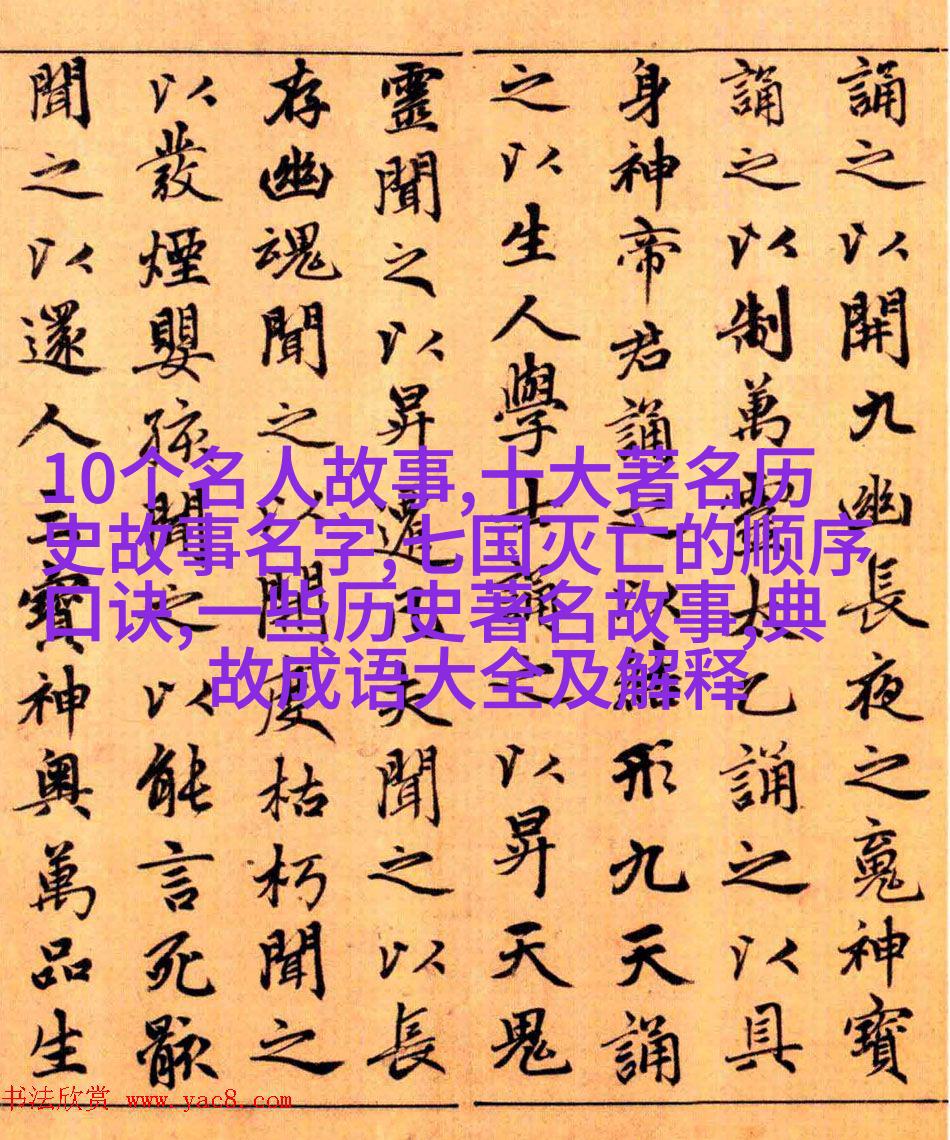 誦之以開九幽長夜之䰟神寶
誦之以制萬靈太乙誦之以具
身神帝君誦之以結形九天誦
之以生人學士誦之以昇天鬼
靈聞之以昇遷凡夫聞之以長
存幽魂聞之以開度枯朽聞之
以發煙嬰孩聞之以能言死骸
聞之以還人三寶神奧萬品生
10个名人故事,十大著名历
史故事名字,七国灭亡的顺序
口诀,一些历史著名故事,典
故成语大全及解释
书法欣赏 www.yac8.com